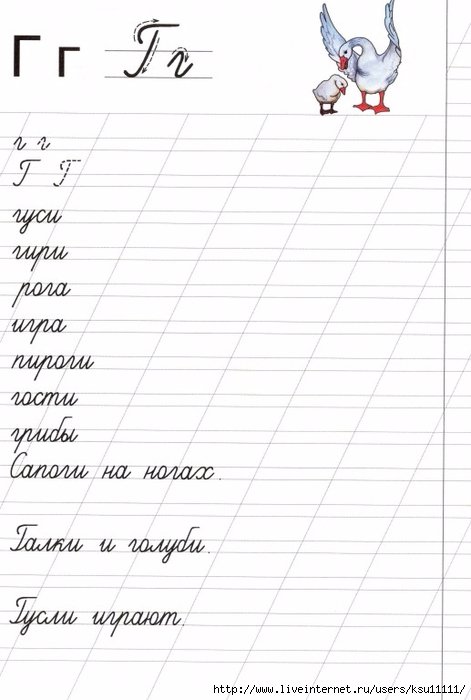 Г г Г г
г г
Г Г
гуси
гири
рога
игра
пироги
гости
грибы
Сапоги на ногах.
Галки и голуби.
Гусли играют.
http://www.liveinternet.ru/users/ksu11111/